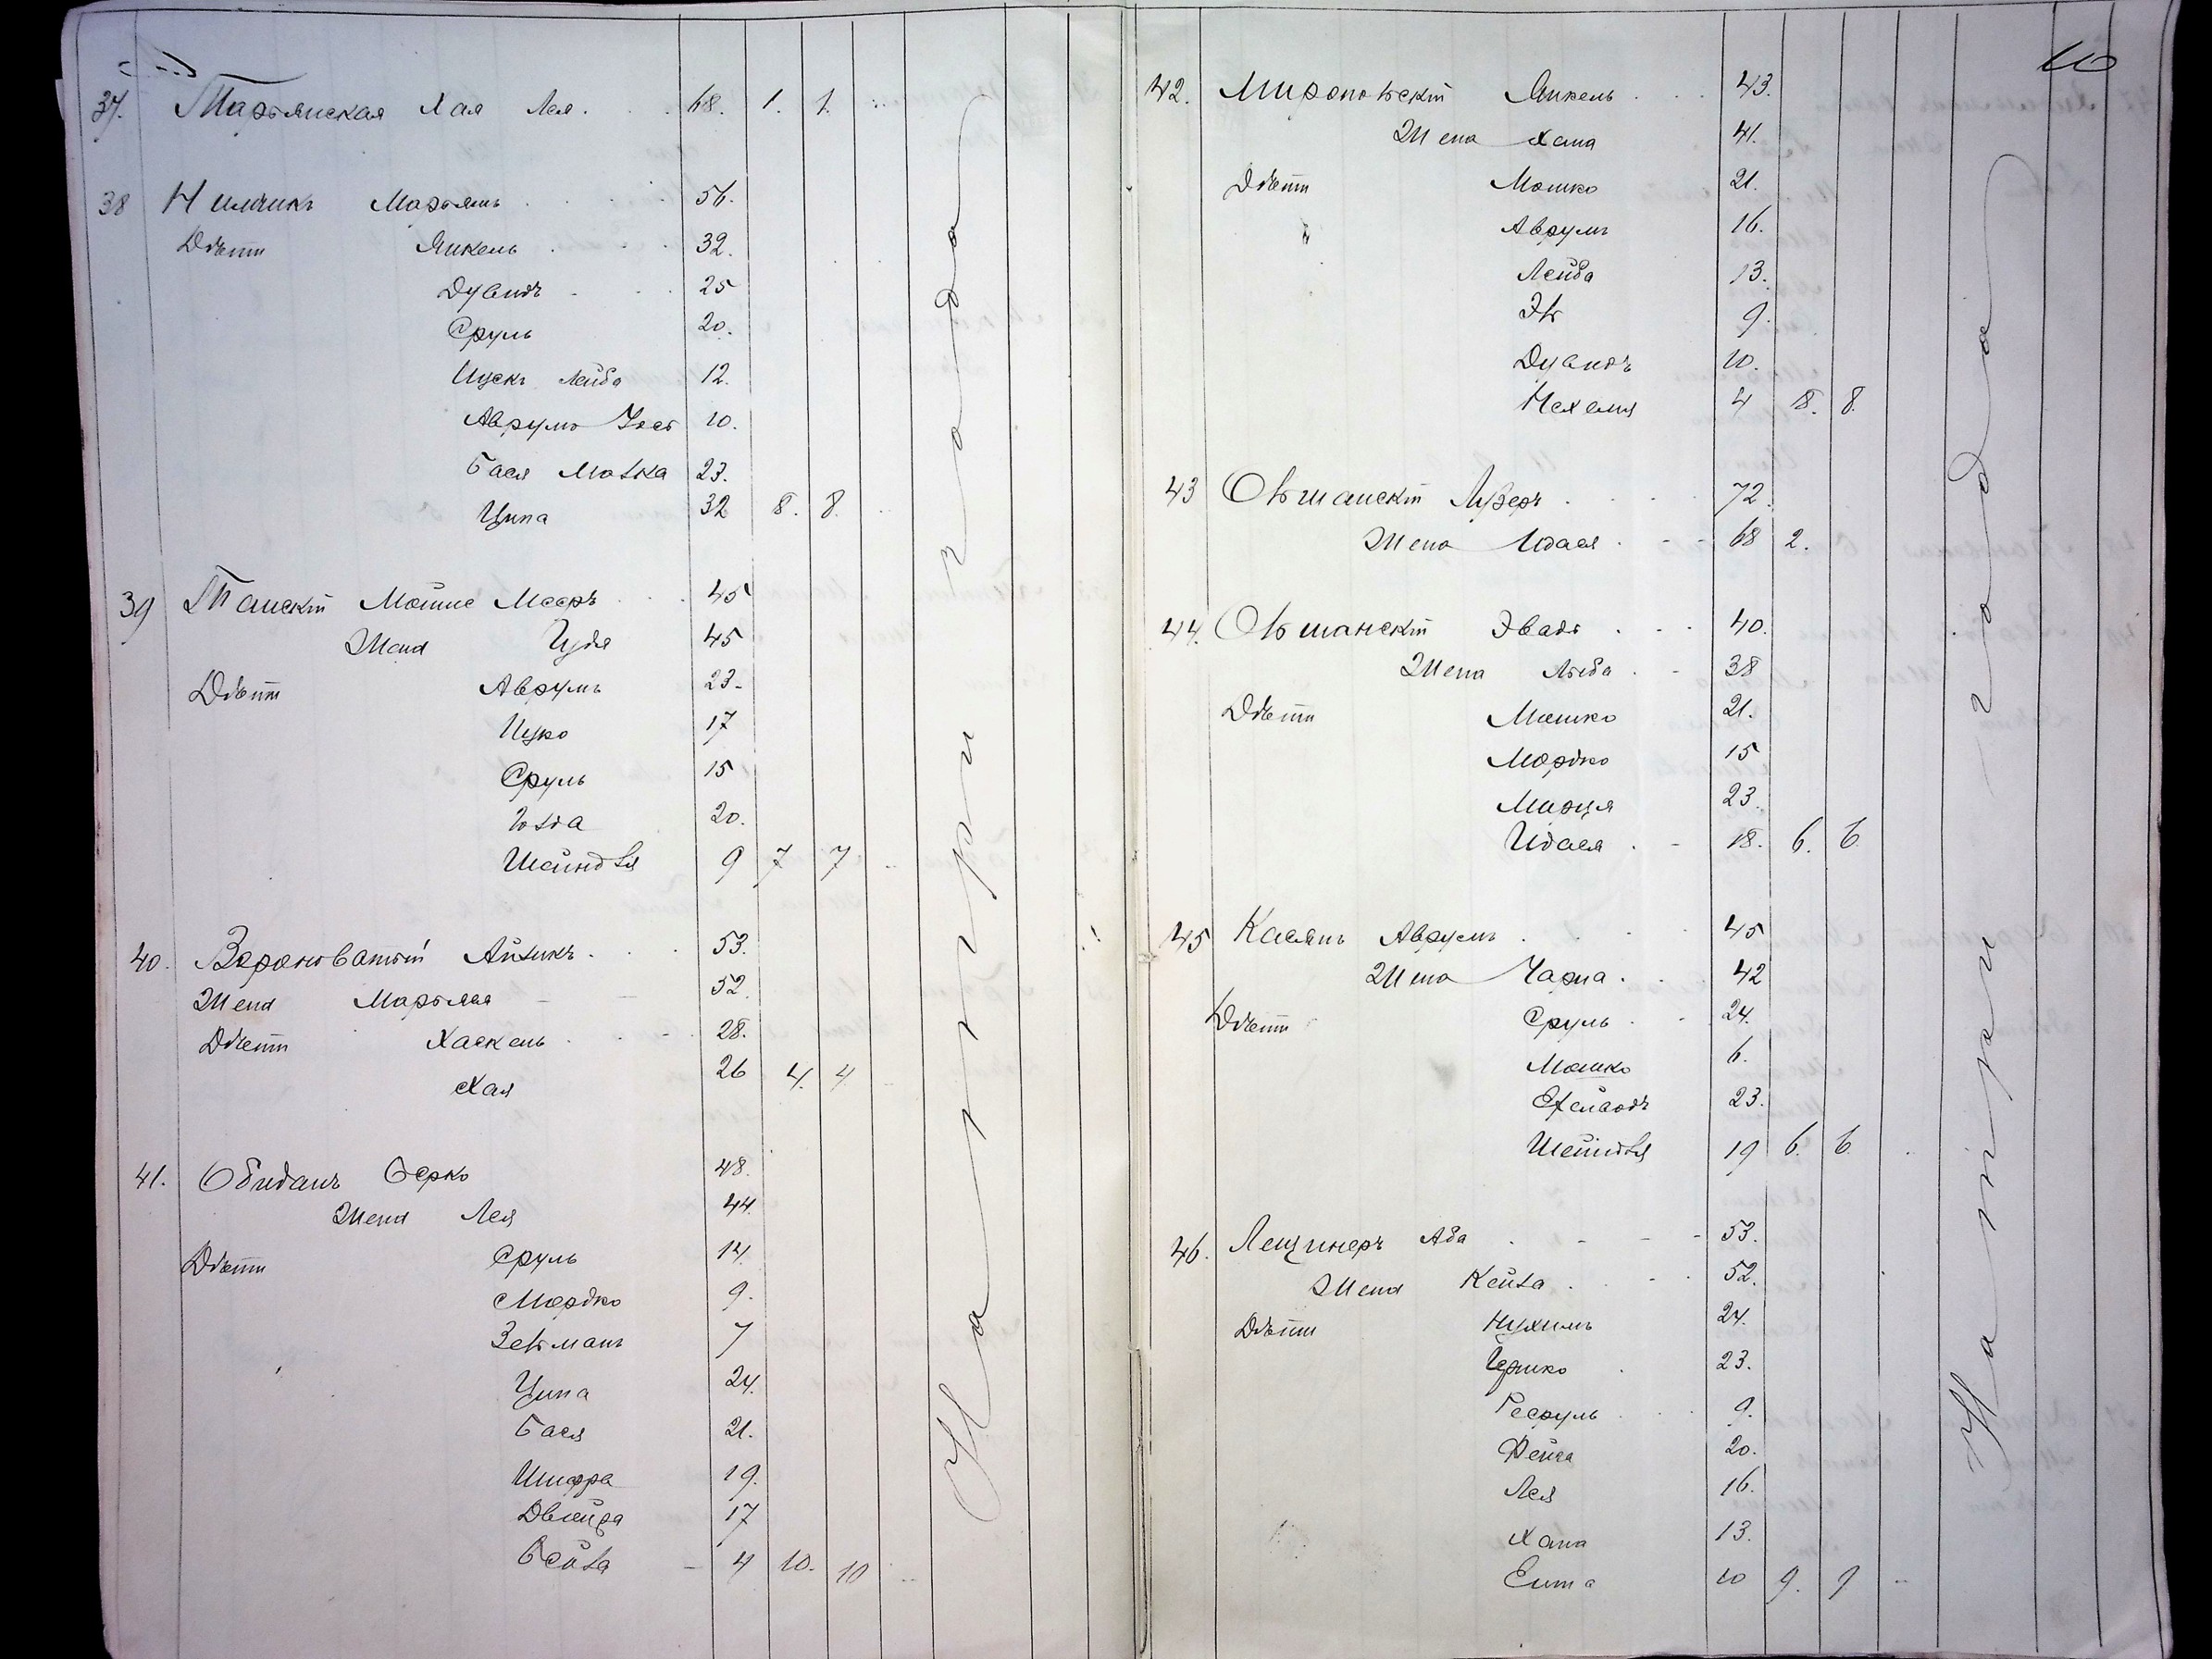 37. Таращанская Хая Лея. 68. 1. 1.
38 Нимчикъ Марьямъ 56.
Дѣти Янкель 32.
Дувидъ 25
Сруль 20.
Ицекъ Лейба 12.
Аврумъ Іосъ 10.
Бася Малка 23.
Ципа 32 8. 8.
39 Танскій Мойше Мееръ 45
Жена Цудя 45
Дѣти Аврумъ 23.
Ицко 17
Сруль 15
20.
Шейндля 9 7 7
40. Вороноватый Айзикъ. 53.
Жена Марьяся 52.
Дѣти Хаскель 28.
Хая 26 4. 4
41. Обиданъ Берко 48.
Жена Лея 44.
Дѣти Сруль 14.
Мордко 9.
Зельманъ 7
Ципа 24.
Бася 21.
Шифра 19.
Двойра 17
Бейла 4 10. 10
На три года
10
42. Мироновскій Янкель 43.
Жена Хана 41.
Дѣти Мошко 21.
" Аврумъ 16.
Лейба 13.
Эль 9.
Дувидъ 10.
Нехемя 4 8. 8.
43 Ольшанскій Лузеръ 72.
Жена Идася 68 2.
44. Ольшанскій Эвадъ 40.
Жена Люба 38
Дѣти Мошко 21.
Мордко 15
Мирця 23.
Идася 18. 6. 6.
45 Касянъ Аврумъ 45
Жена Чарна 42
Дѣти Сруль 24.
Мошко 6.
23.
Шейндля 19 6. 6.
46. Лещинеръ Аба 53.
Жена Кейла 52.
Дѣти Нухимъ 24.
Гершко 23.
9.
Фейга 20.
Лея 16.
Хана 13.
Ента 10 9. 9
На три года